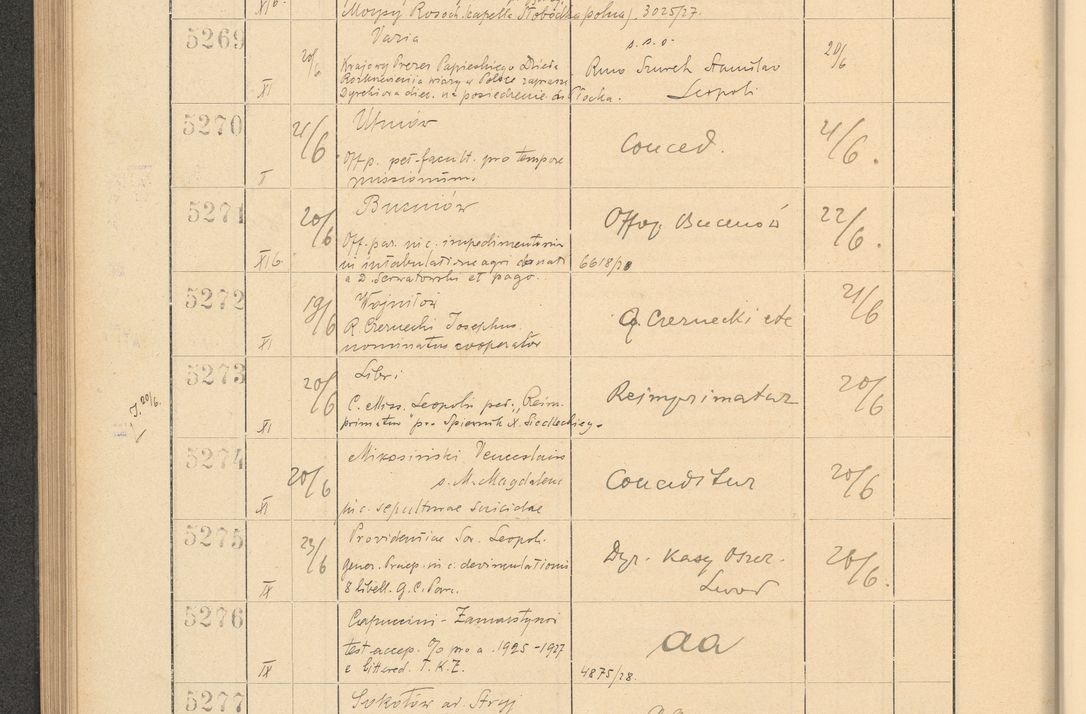 XI6.
Moysy Rosoch. kapella Słobódka polna). 3025/27.
5269
XI
20/6
Varia
Krajowy Prezes Papieskiego Dzieła
Rozkrzewienia wiary w Polsce zaprasza
Dyrektora diec. na posiedzenie do Płocka.
s.s.o.
Rmo Szurek Stanislao
Leopoli
20/6
5270
V
21/6
Uhnów
Off p. pet. facult. pro tempore
missionum.
Conced.
21/6.
5271
XI6
20/6
Bucniów
Off. par. in c. impedimentorum
in intabulatione agri donati
a D. Serwatowski et pago.
Offoq Bucniów
6618/28
22/6.
5272
XI
19/6
Wojniłów
R. Czernecki Josephus
nominatus cooperator
Czernecki etc
21/6
J. 20/6.
5273
XI
20/6
Libri
C. Miss. Leopolis pet. „Reim-
primatur" pro Śpiewnik X. Siedleckiego
Reimprimatur
20/6
5274
XI
20/6
Mikosiński Venceslaus
s. M. Magdalena
in c. sepulturae suicidae
Conceditur
20/6
5275
IX
23/6
Providentiae Soc. Leopol.
gener. Praep. in c. devinculationis
8 libell. G. C. Parc.
Dyr. Kasy Oszcz.
Lwów
28/6.
5276
IX
Capuccini - Zamarstynów
test. accep. % pro a. 1925-1927
e littered. T. K. Z.
aa
4875/28.
5277
Sokołów ad Stryj
aa